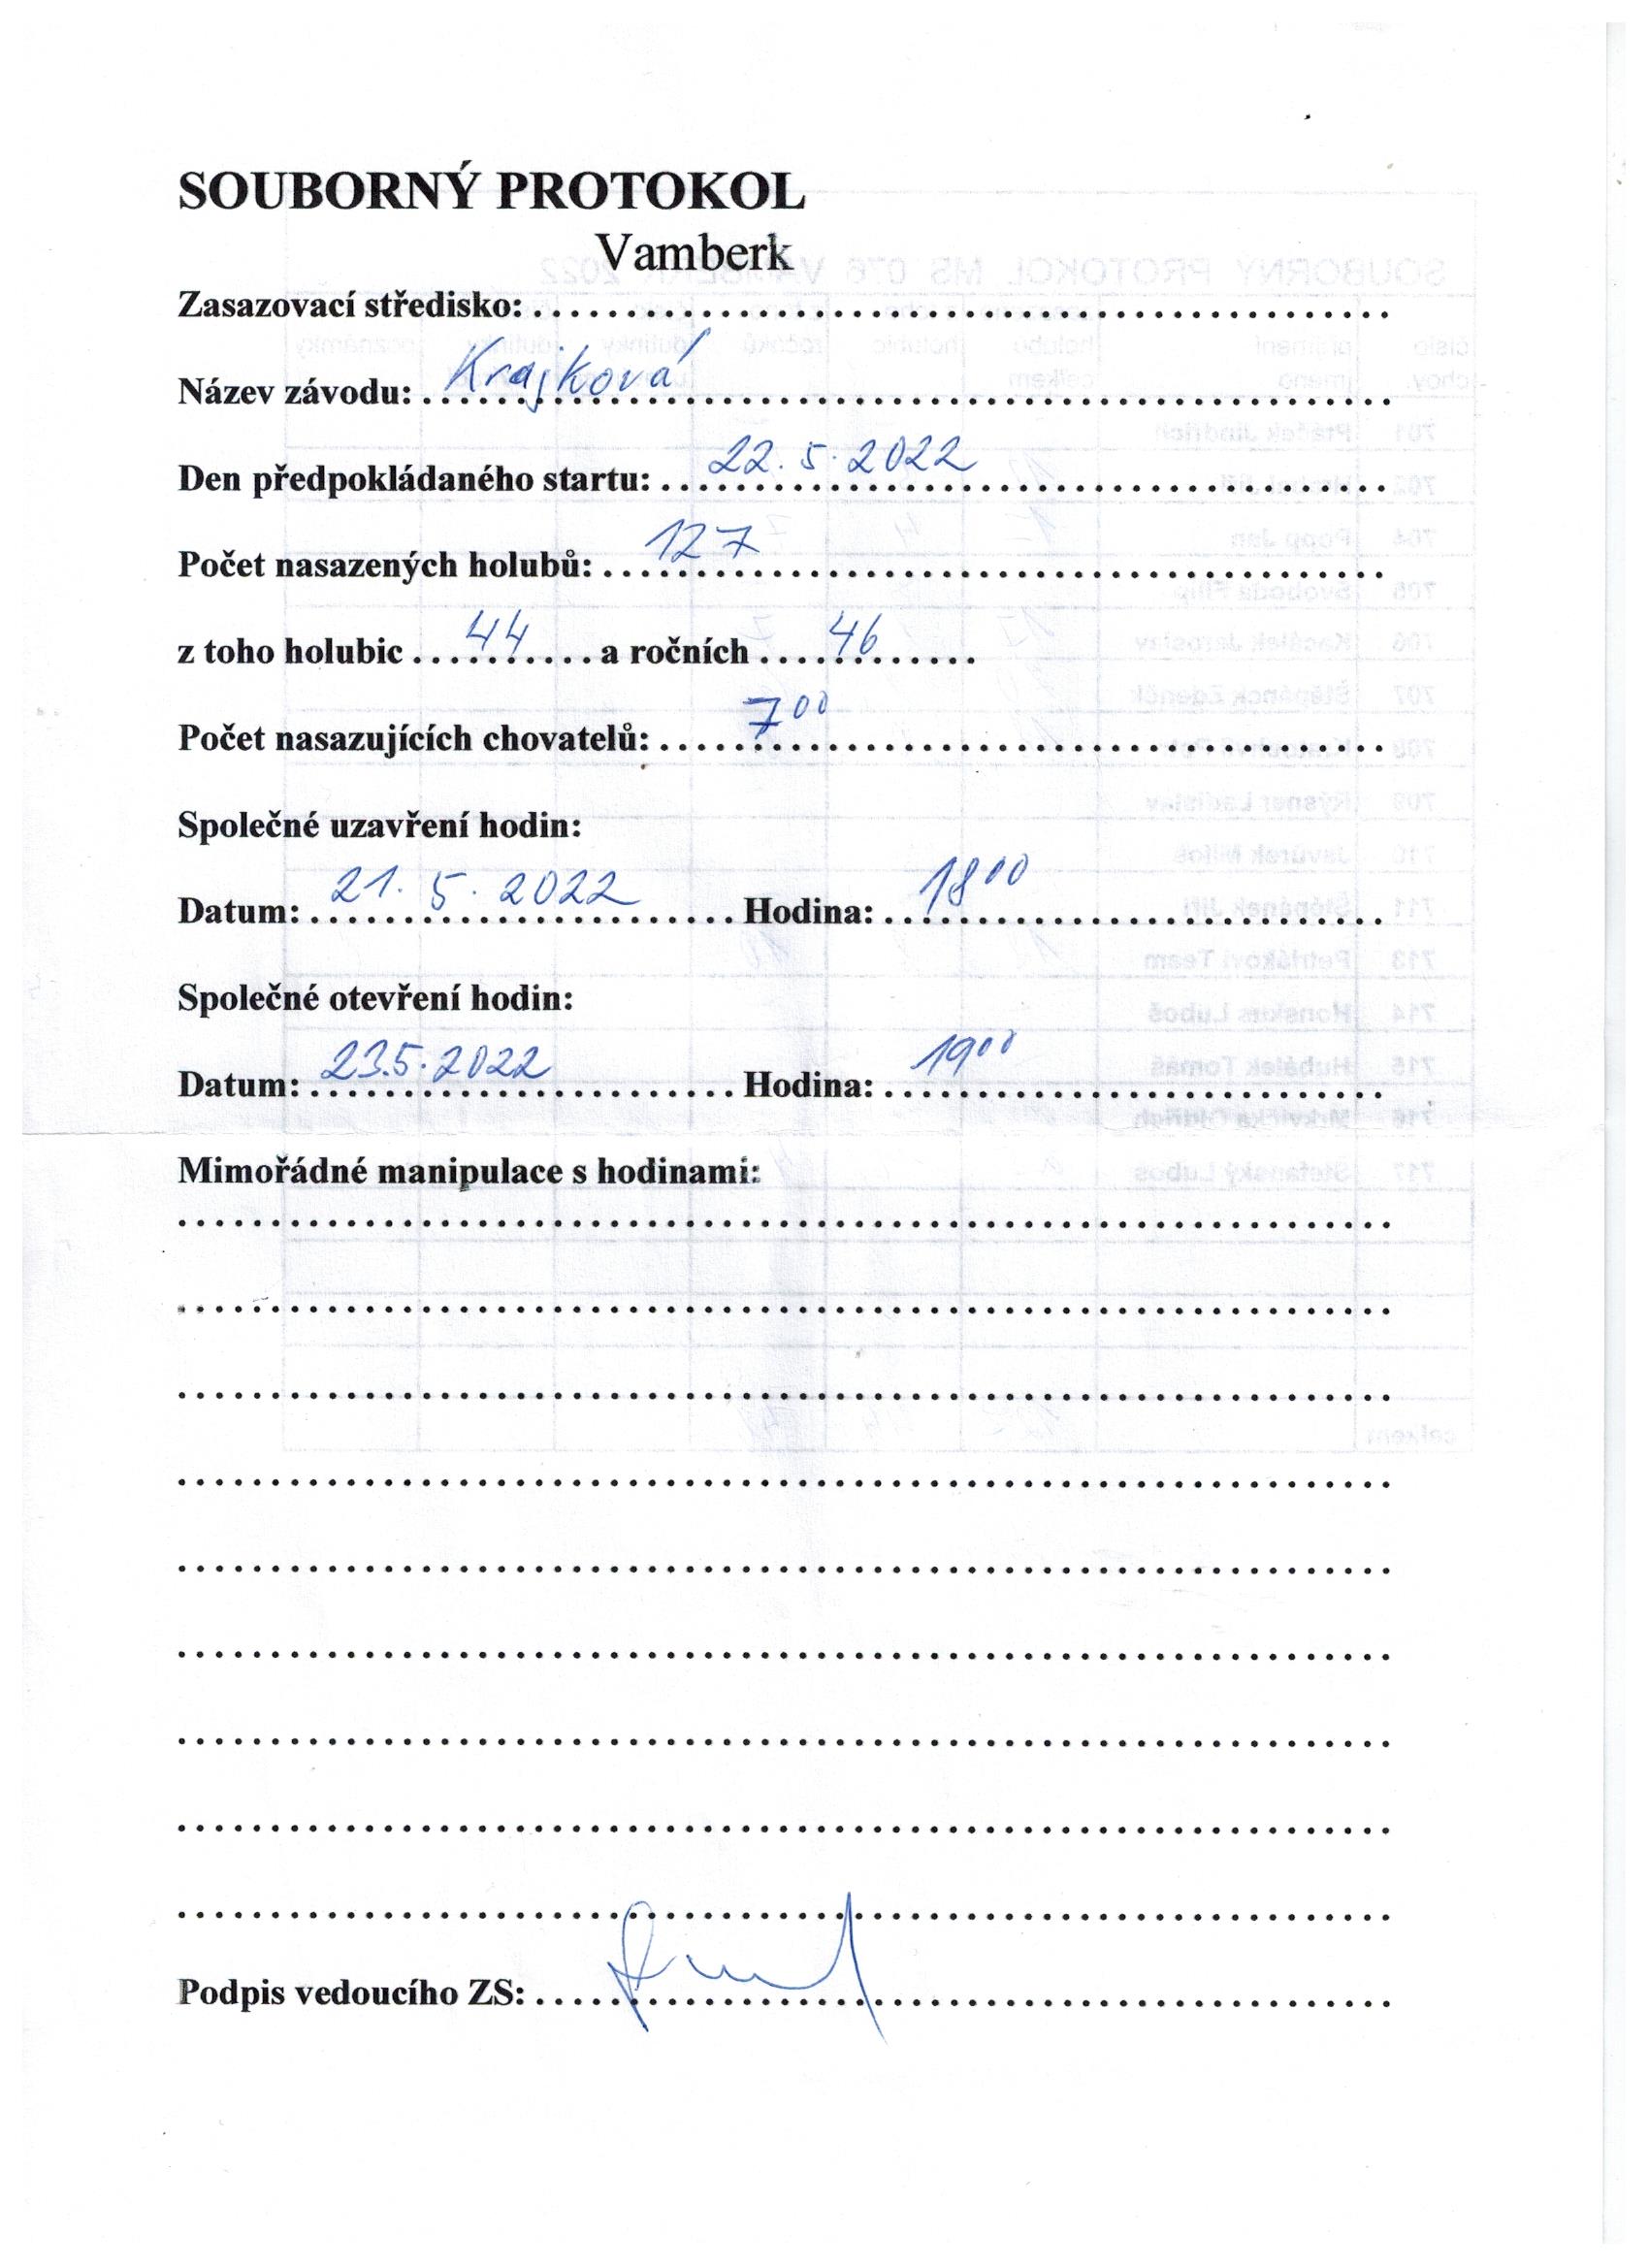 SOUBORNÝ PROTOKOL
Vamberk
Zasazovací středisko:
Název závodu: Krajková
Den předpokládaného startu: 22. 5. 2022
Počet nasazených holubů: 127
z toho holubic 44 a ročních 46
Počet nasazujících chovatelů: 7⁰⁰
Společné uzavření hodin:
Datum: 21. 5. 2022 Hodina: 18⁰⁰
Společné otevření hodin:
Datum: 23.5.2022 Hodina: 19⁰⁰
Mimořádné manipulace s hodinami:
Podpis vedoucího ZS: